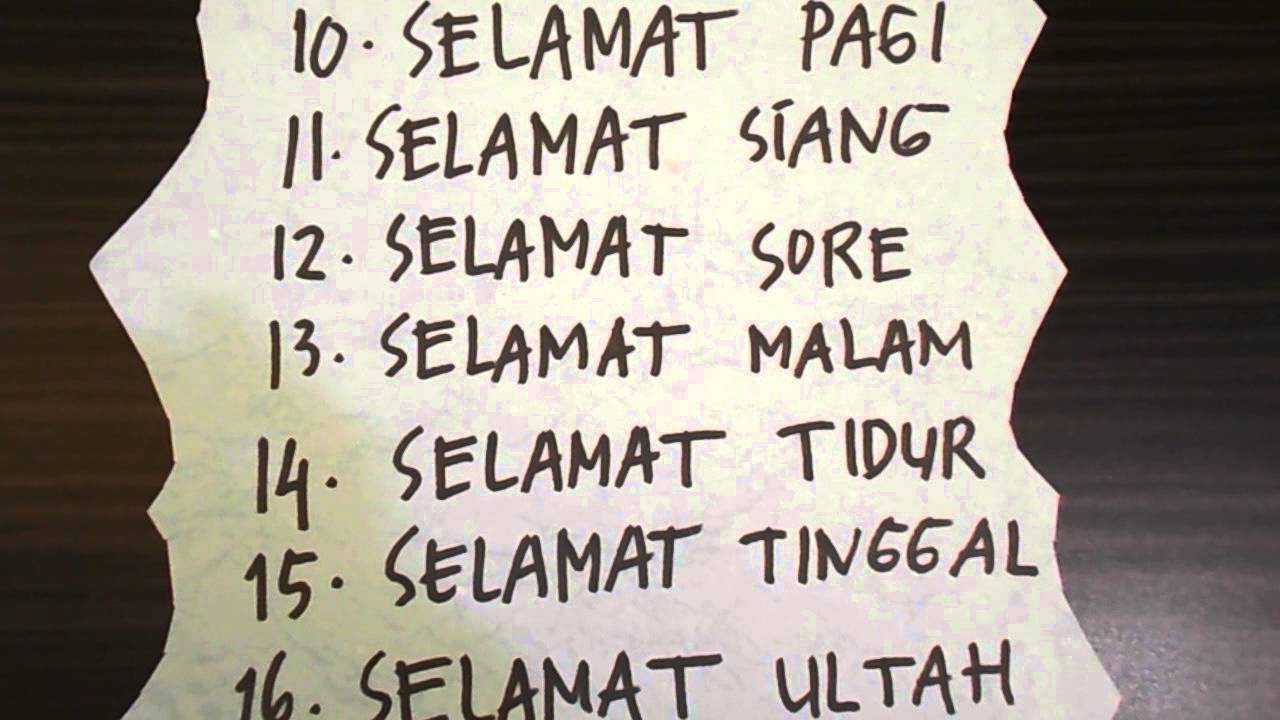 10. SELAMAT PAGI
11. SELAMAT SIANG
12. SELAMAT SORE
13. SELAMAT MALAM
14. SELAMAT TIDUR
15. SELAMAT TINGGAL
16. SELAMAT ULTAH